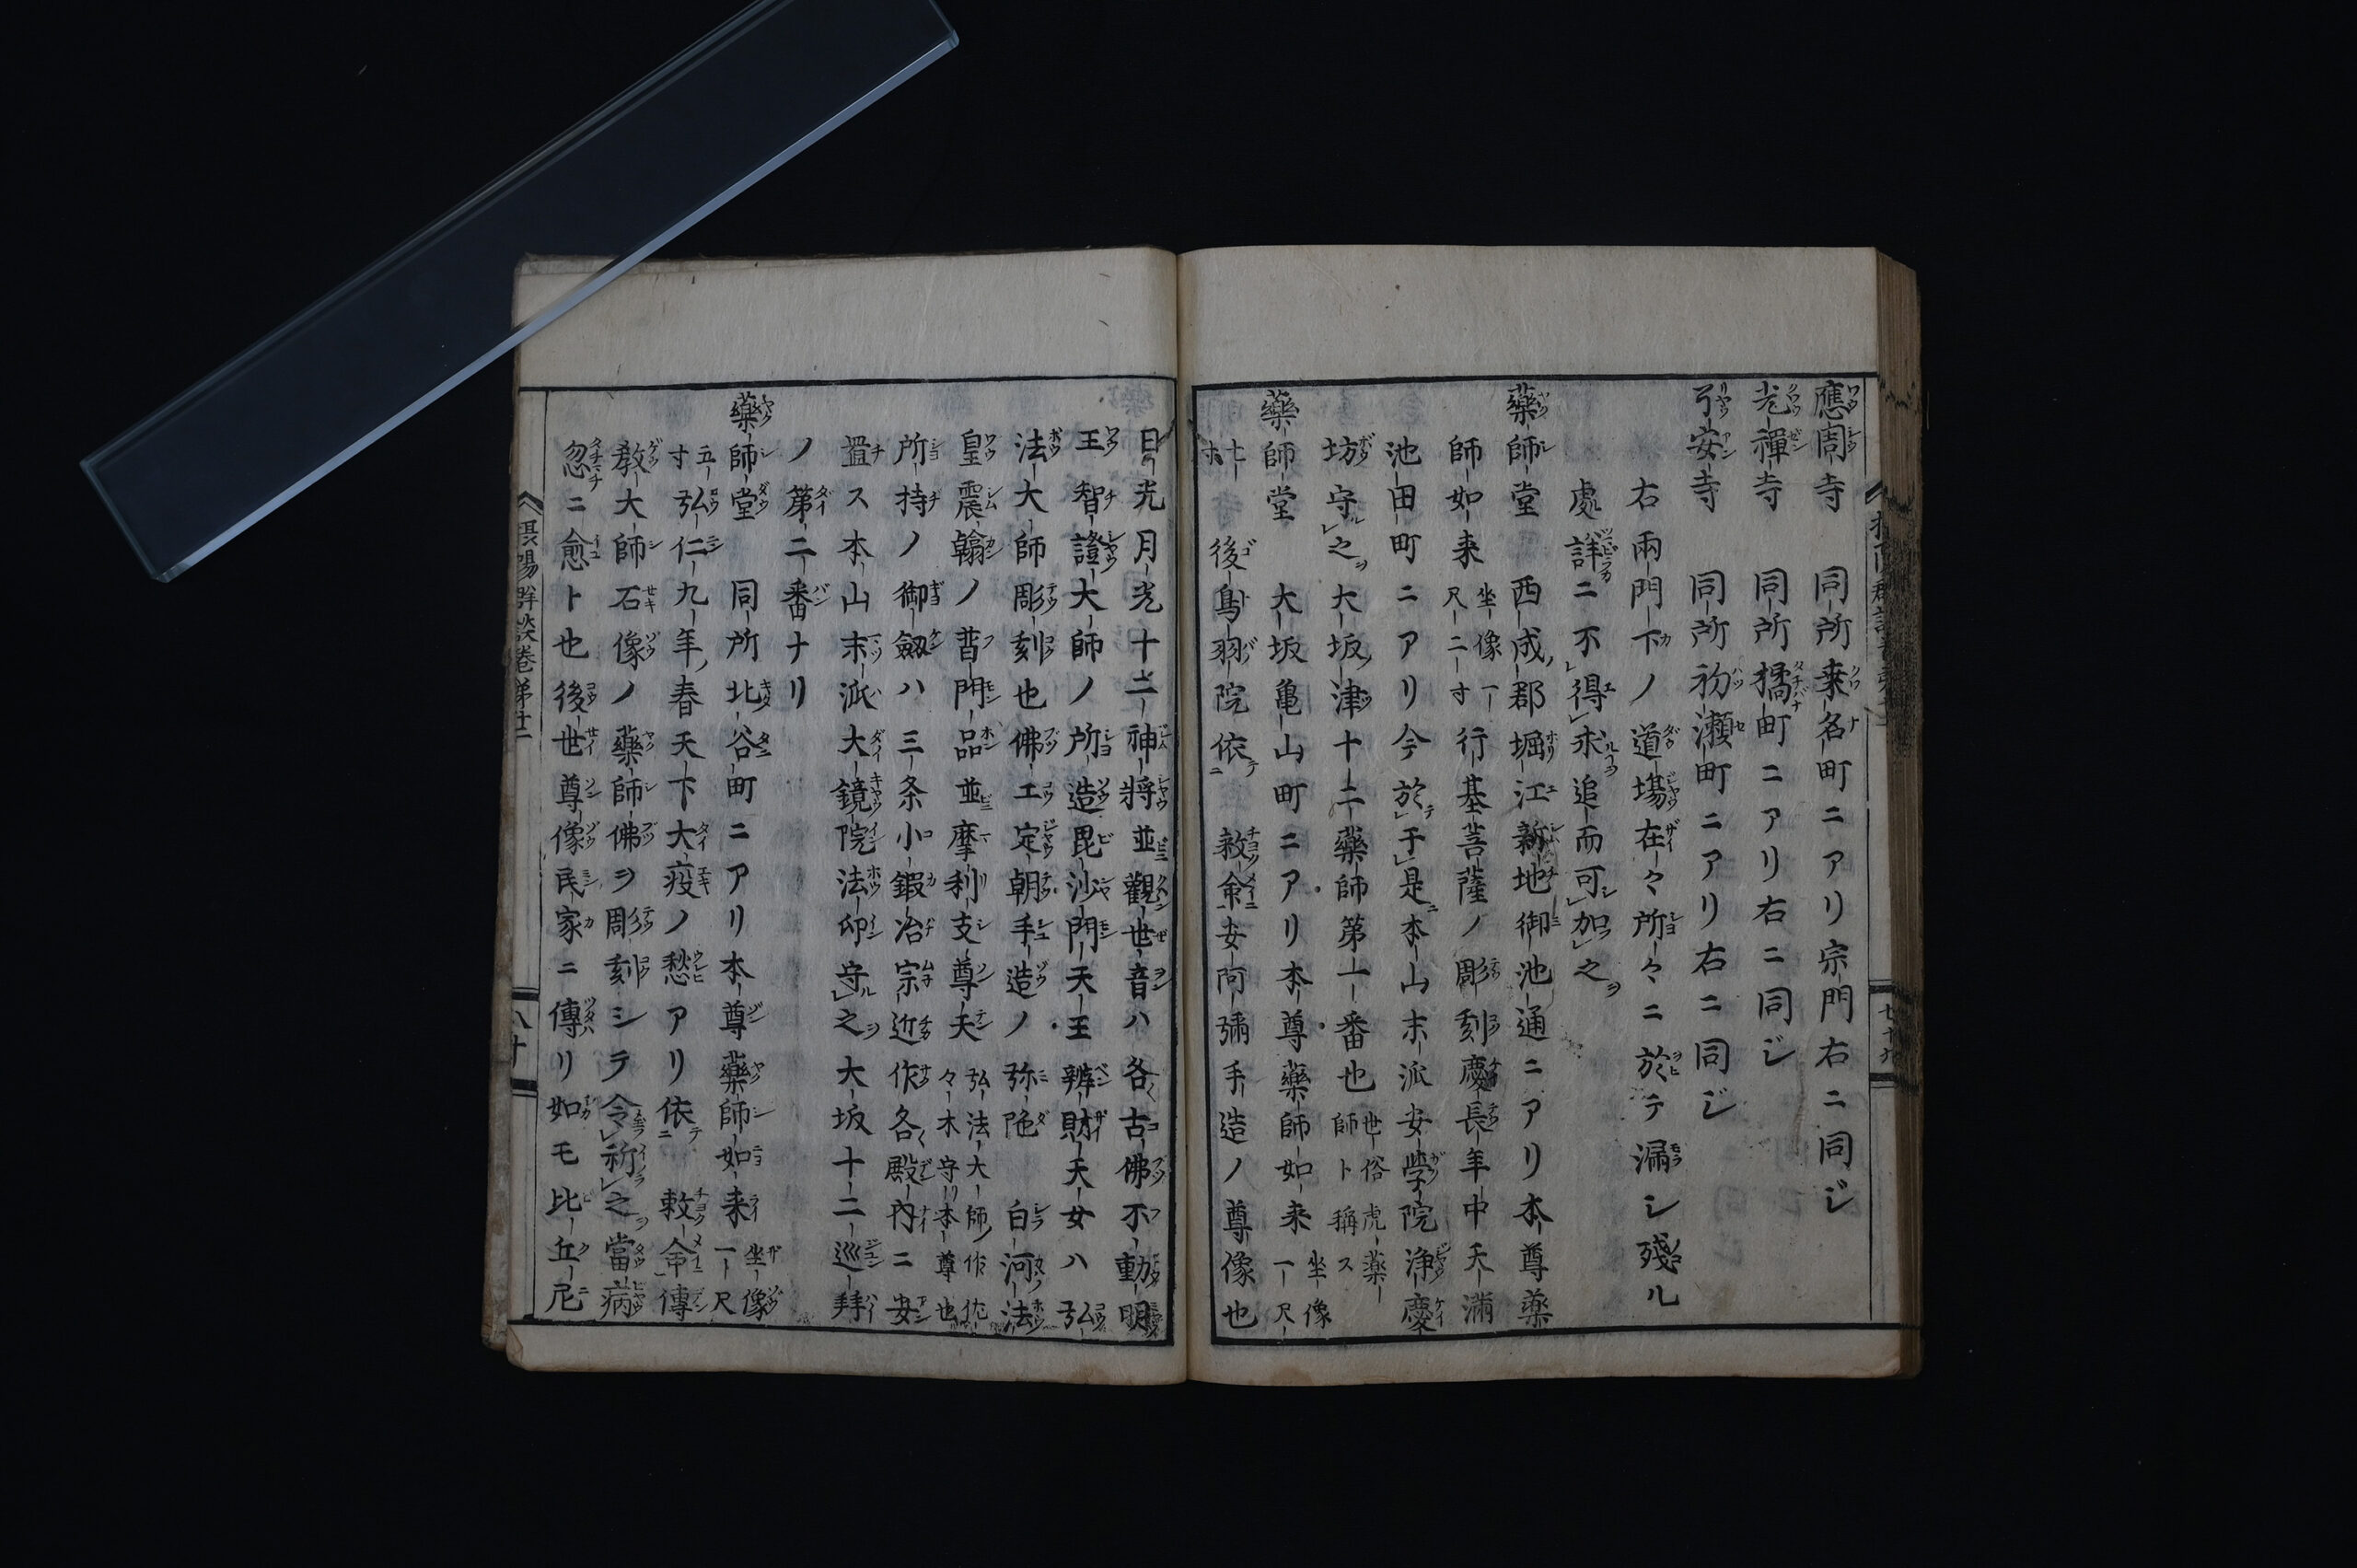 應周寺　同所桒名町ニアリ宗門右ニ同ジ
光禪寺　同所橘町ニアリ右ニ同ジ
弓安寺　同所初瀬町ニアリ右ニ同ジ
右兩門下ノ道塲在々所々ニ於テ漏シ殘ル
處詳ニ不得求追而可加之
藥師堂　西成郡堀江新地御池通ニアリ本尊藥
師如来坐像一尺二寸行基菩薩ノ彫刻慶長年中天滿
池田町ニアリ今於于是本山末派安学院浄慶
坊守之大坂津十二藥師第一番也世俗虎藥師ト稱ス
藥師堂　大坂亀山町ニアリ本尊藥師如来坐像一尺
後鳥羽院依　敕命安阿彌手造ノ尊像也
日光月光十二神將並觀世音ハ各古佛不動明
王智證大師ノ所造毘沙門天王辨財天女ハ弘
法大師彫刻也佛工定朝手造ノ弥陀　白河法
皇震翰ノ普門品並摩利支尊天弘法大師作佐々木守リ本尊也
所持ノ御劔ハ三条小鍛冶宗近作各殿内ニ安
置ス本山末派大鏡院法印守之大坂十二巡拜
ノ第二番ナリ
藥師堂　同所北谷町ニアリ本尊藥師如来坐像一尺
五寸弘仁九年春天下大疫ノ愁アリ依　敕命傳
敎大師石像ノ藥師佛ヲ周刻シテ令祈之當病
忽ニ愈ト也後世尊像民家ニ傳リ如モ比丘尼
摂陽群談巻第十二
八十
七十九